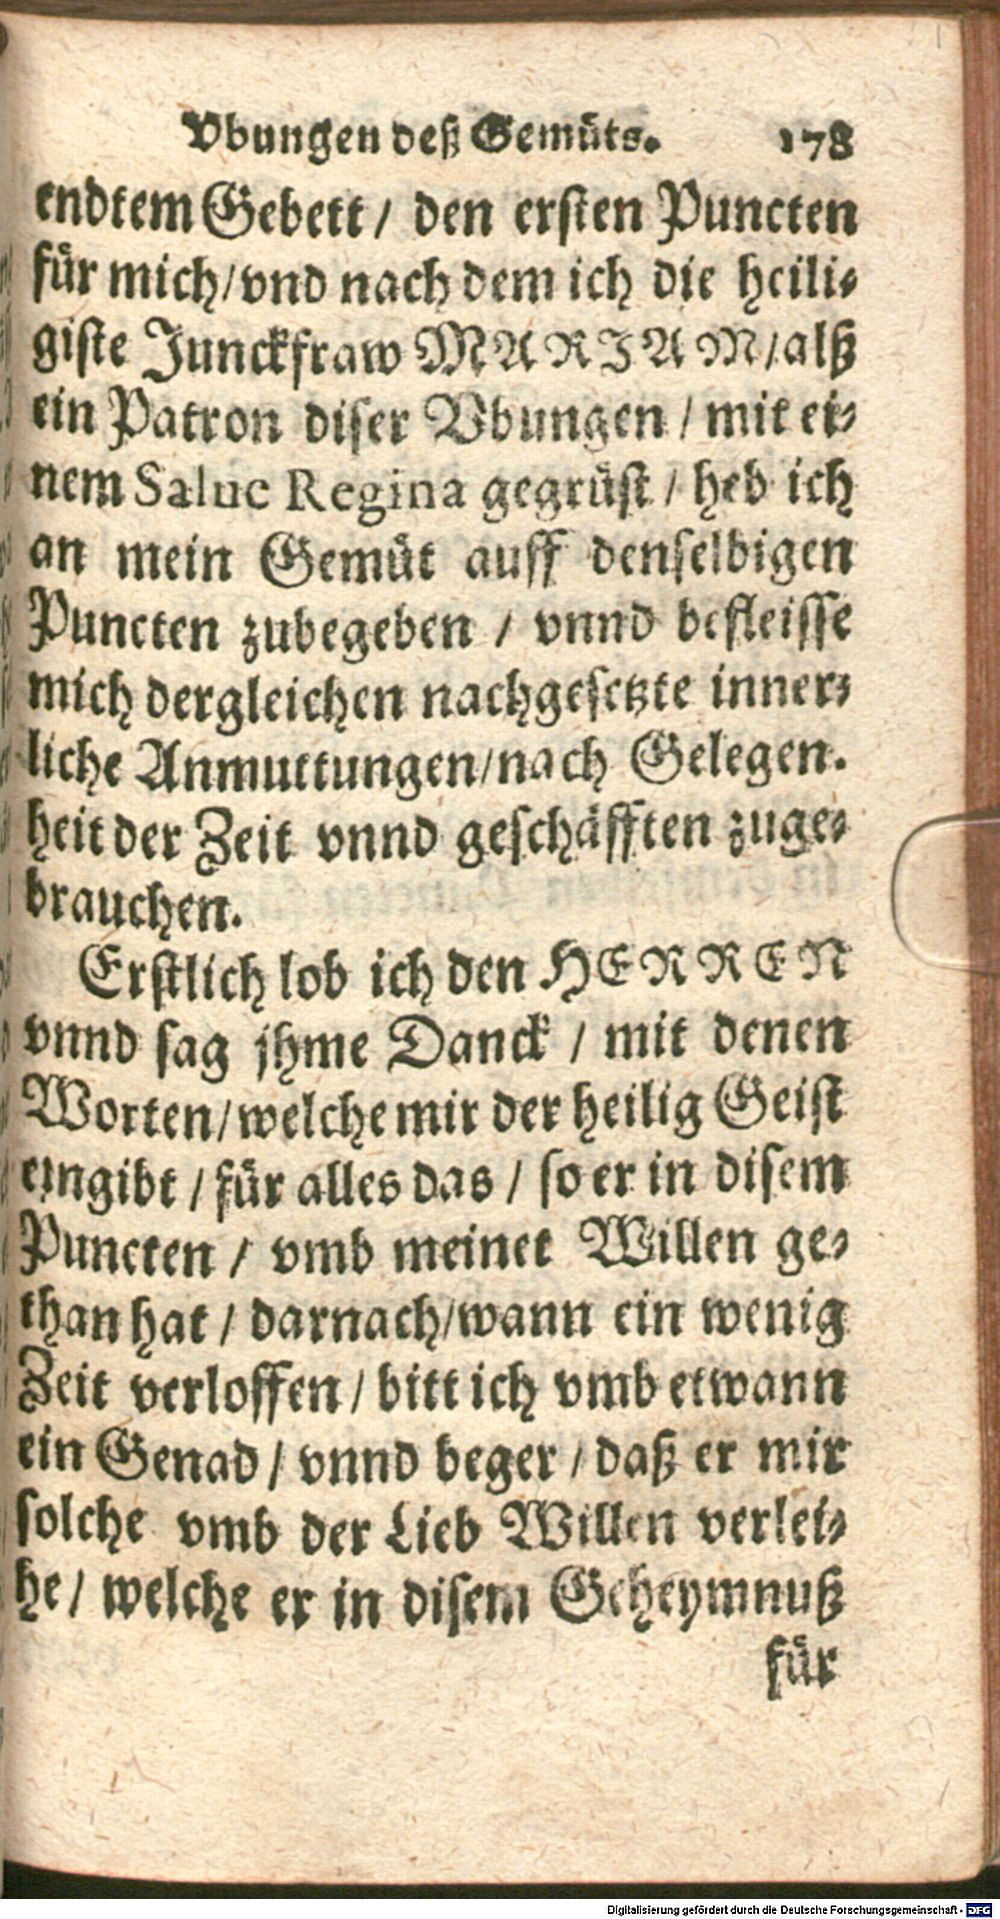 Vbungen deß Gemüts. 178
endtem Gebett / den ersten Puncten
für mich / vnd nach dem ich die heili-
giste Junckfraw MARIAM / alß
ein Patron diser Vbungen / mit ei-
nem Salue Regina gegrüst / heb ich
an mein Gemüt auff denselbigen
Puncten zubegeben / vnnd befleisse
mich dergleichen nachgesetzte inner-
liche Anmuttungen / nach Gelegen-
heit der Zeit vnnd geschäfften zuge-
brauchen.
Erstlich lob ich den HERREN
vnnd sag jhme Danck / mit denen
Worten / welche mir der heilig Geist
eingibt / für alles das / so er in disem
Puncten / vmb meinet Willen ge-
than hat / darnach / wann ein wenig
Zeit verloffen / bitt ich vmb etwann
ein Genad / vnnd beger / daß er mir
solche vmb der Lieb Willen verlei-
he / welche er in disem Geheymnuß
für
Digitalisierung gefördert durch die Deutsche Forschungsgemeinschaft - DFG